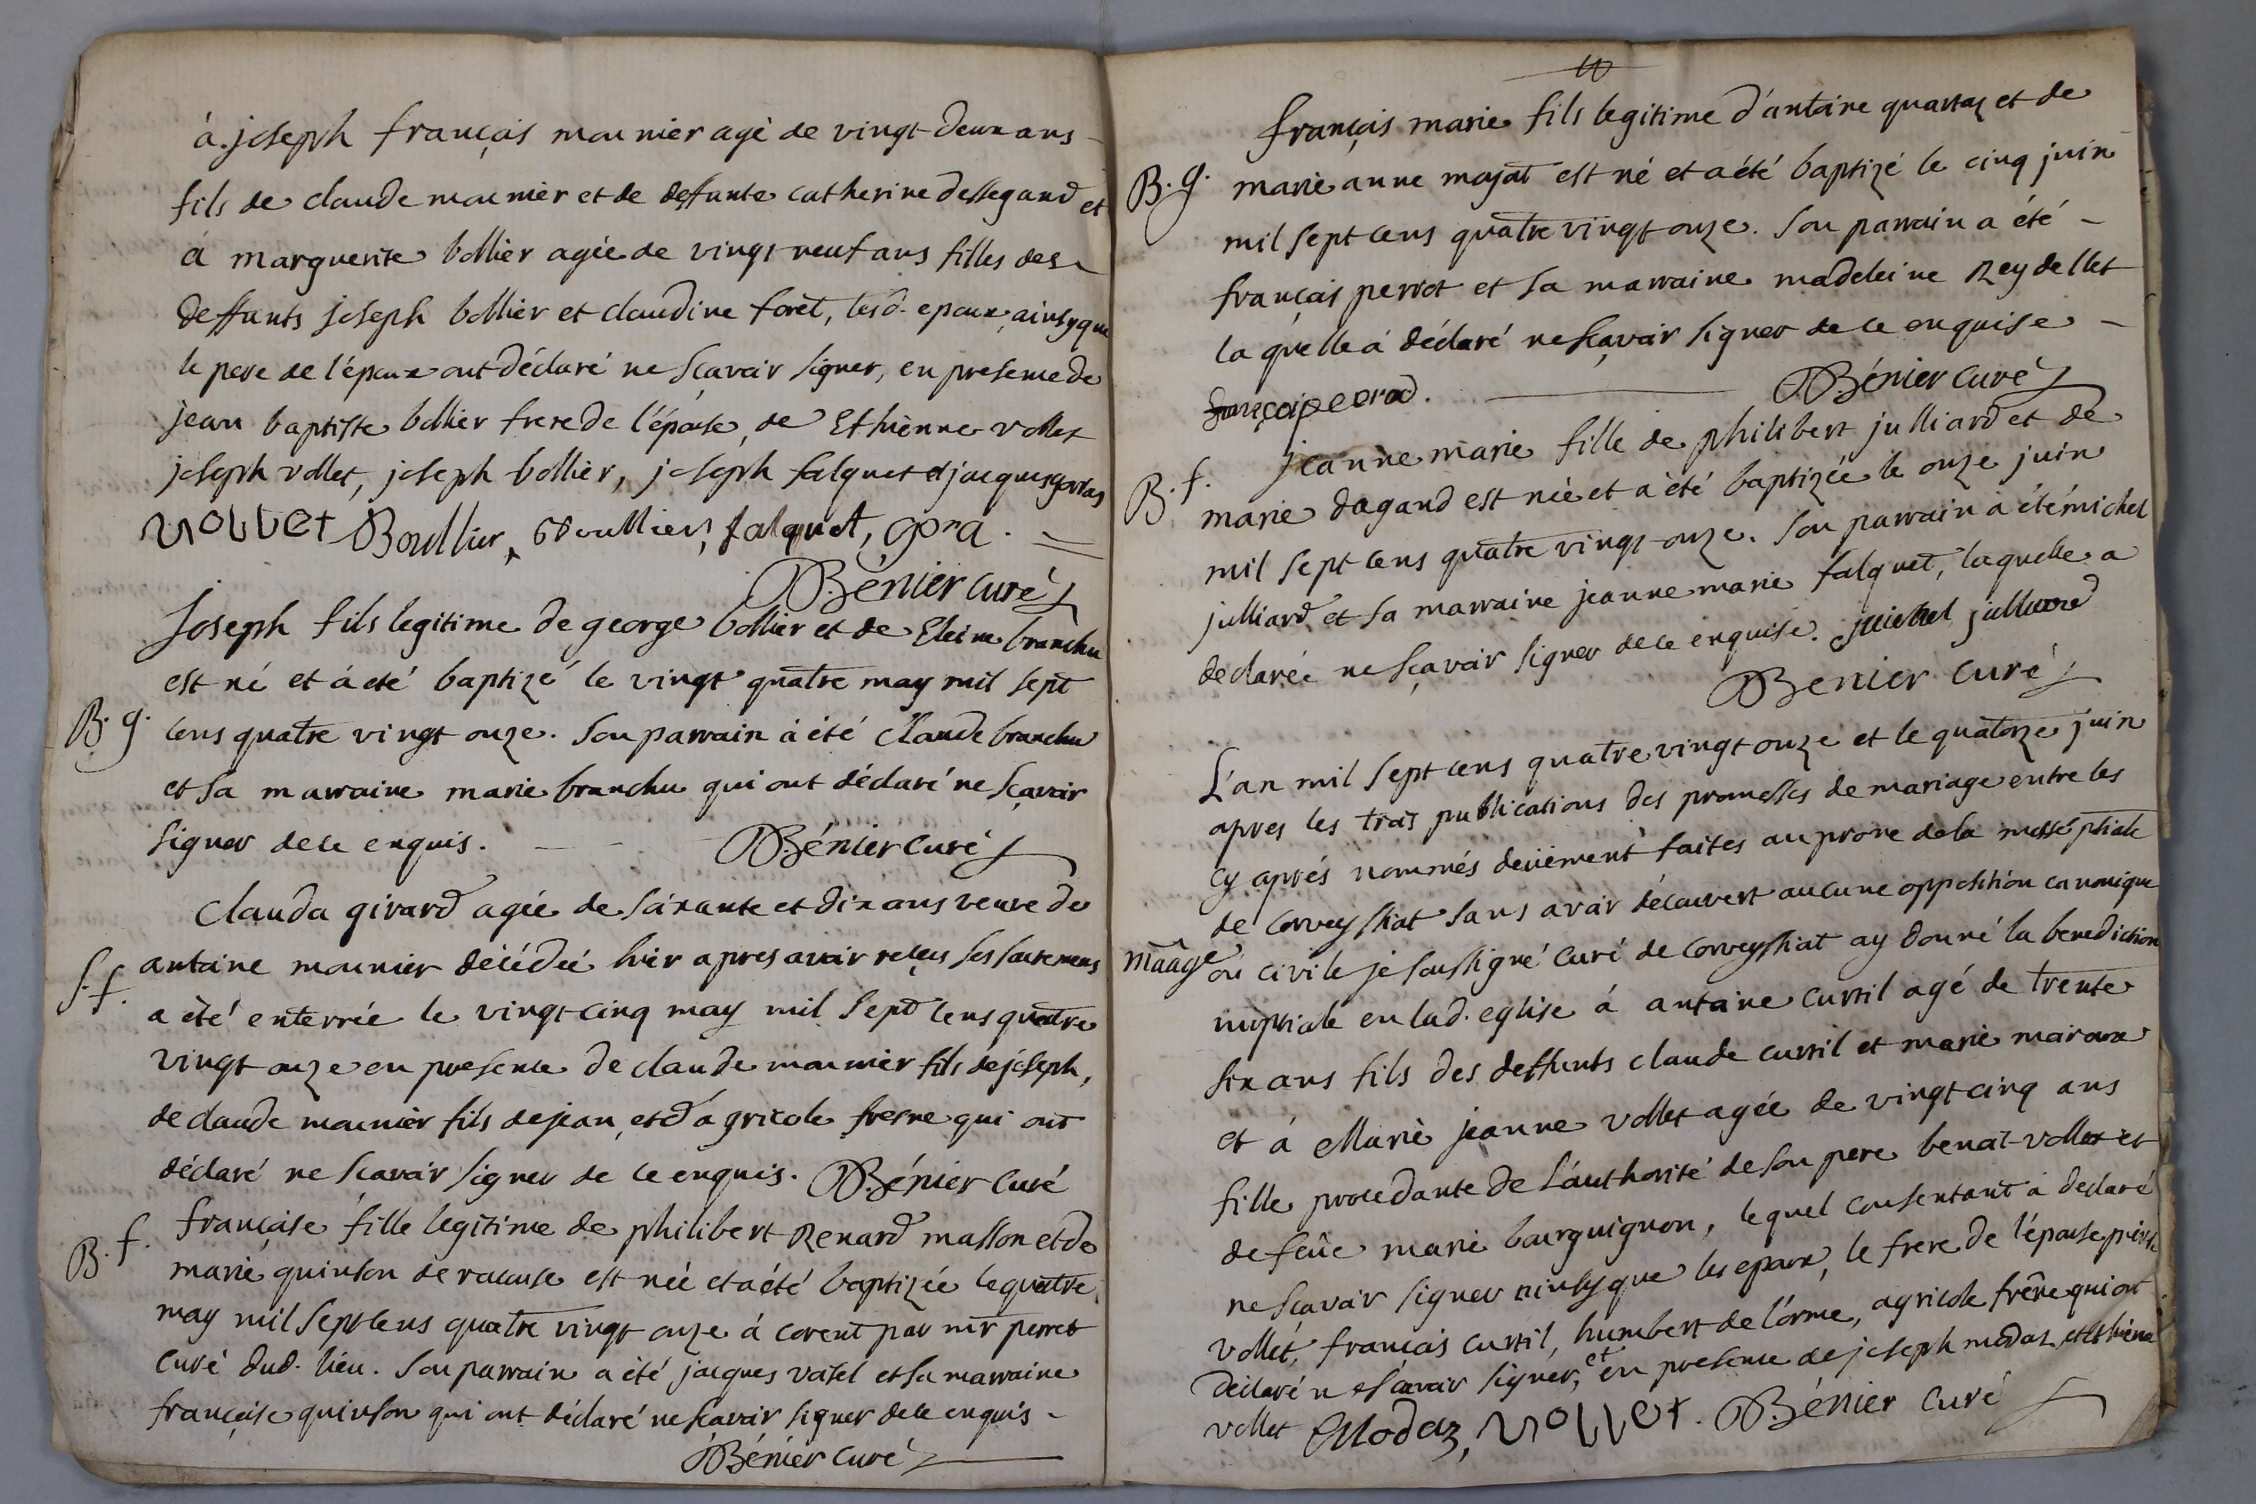 à joseph françois mounier agé de vingt deux ans
fils de claude mounier et de deffunte catherine dessegand et
à marguerite bollier agée de vingt neuf ans filles des
deffunts joseph bollier et claudine forêt, lesd. epoux ainsy que
le pere de l'époux ont déclaré ne sçavoir signer, en presence de
jean baptiste bollier frere de l'épouse, de Ethienne vollet
joseph vollet, joseph bollier, joseph falquet et jacques gorras
vollet Boullier, Boullier, falquet, gora.
Bénier curé
Joseph fils legitime de george bollier et de Eleine branchu
est né et à eté baptizé le vingt quatre may mil sept
B. g. cens quatre vingt onze. son parrain à été Claude branchu
et sa marraine marie branchu qui ont déclaré ne sçavoir
signer de ce enquis. Bénier curé
Clauda girard agée de soixante et dix ans veuve de
S. f. antoine mounier décédée hier apres avoir reçus ses sacremens
a été enterrée le vingt-cinq may mil sept cens quatre
vingt onze en presence de claude mounier fils de joseph,
de claude mounier fils de jean, et d'agricole fresne qui ont
déclaré ne sçavoir signer de ce enquis. Bénier curé
B. f. françoise fille legitime de philibert Renard masson et de
marie quinson de racouse est née et a été baptizée le quatre
may mil sept cens quatre vingt onze á corent par mr perret
curé dud. lieu. Son parrain a été jacques vatel et sa marraine
françoise quinson qui ont déclaré ne sçavoir signer de ce enquis
Bénier curé
françois marie fils legitime d'antoine quartaz et de
B. g. marie anne mojat est né et a été baptizé le cinq juin
mil sept cens quatre vingt onze. Son parrain a été
françois perrot et sa marraine madeleine Reydellet
la quelle à déclaré ne sçavoir signer de ce enquise
Bénier curé
jeanne marie fille de philibert julliard et de
B. f. marie dagand est née et a été baptizée le onze juin
mil sept cens quatre vingt onze. Son parrain à été michel
julliard et sa marraine jeanne marie falquet, laquelle a
declarée ne sçavoir signer de ce enquise. michel julliard
Benier curé
L'an mil sept cens quatre vingt onze et le quatorze juin
apres les trois publications des promesses de mariage entre les
cy aprés nommés deüement faites au prone de la messe pŝiale
de corveyssiat sans avoir découvert aucune opposition canonique
mãage ou civile je soussigné curé de corveyssiat ay donné la benediction
nuptiale en lad. eglise á antoine curtil agé de trente
six ans fils des deffunts claude curtil et marie maroux
et á Marie jeanne vollet agée de vingt cinq ans
fille procedante de l'authorité de son pere benoit vollet et
de feûe marie bourguignon, lequel consentant a déclaré
ne sçavoir signer ainsy que les epoux, le frere de l'épouse pierre
vollet, françois curtil, humbert de l'orme, agricole frêne qui ont
déclaré ne sçavoir signer, et en presence de joseph modas et Ethiene
vollet Modaz, vollet. Bénier curé